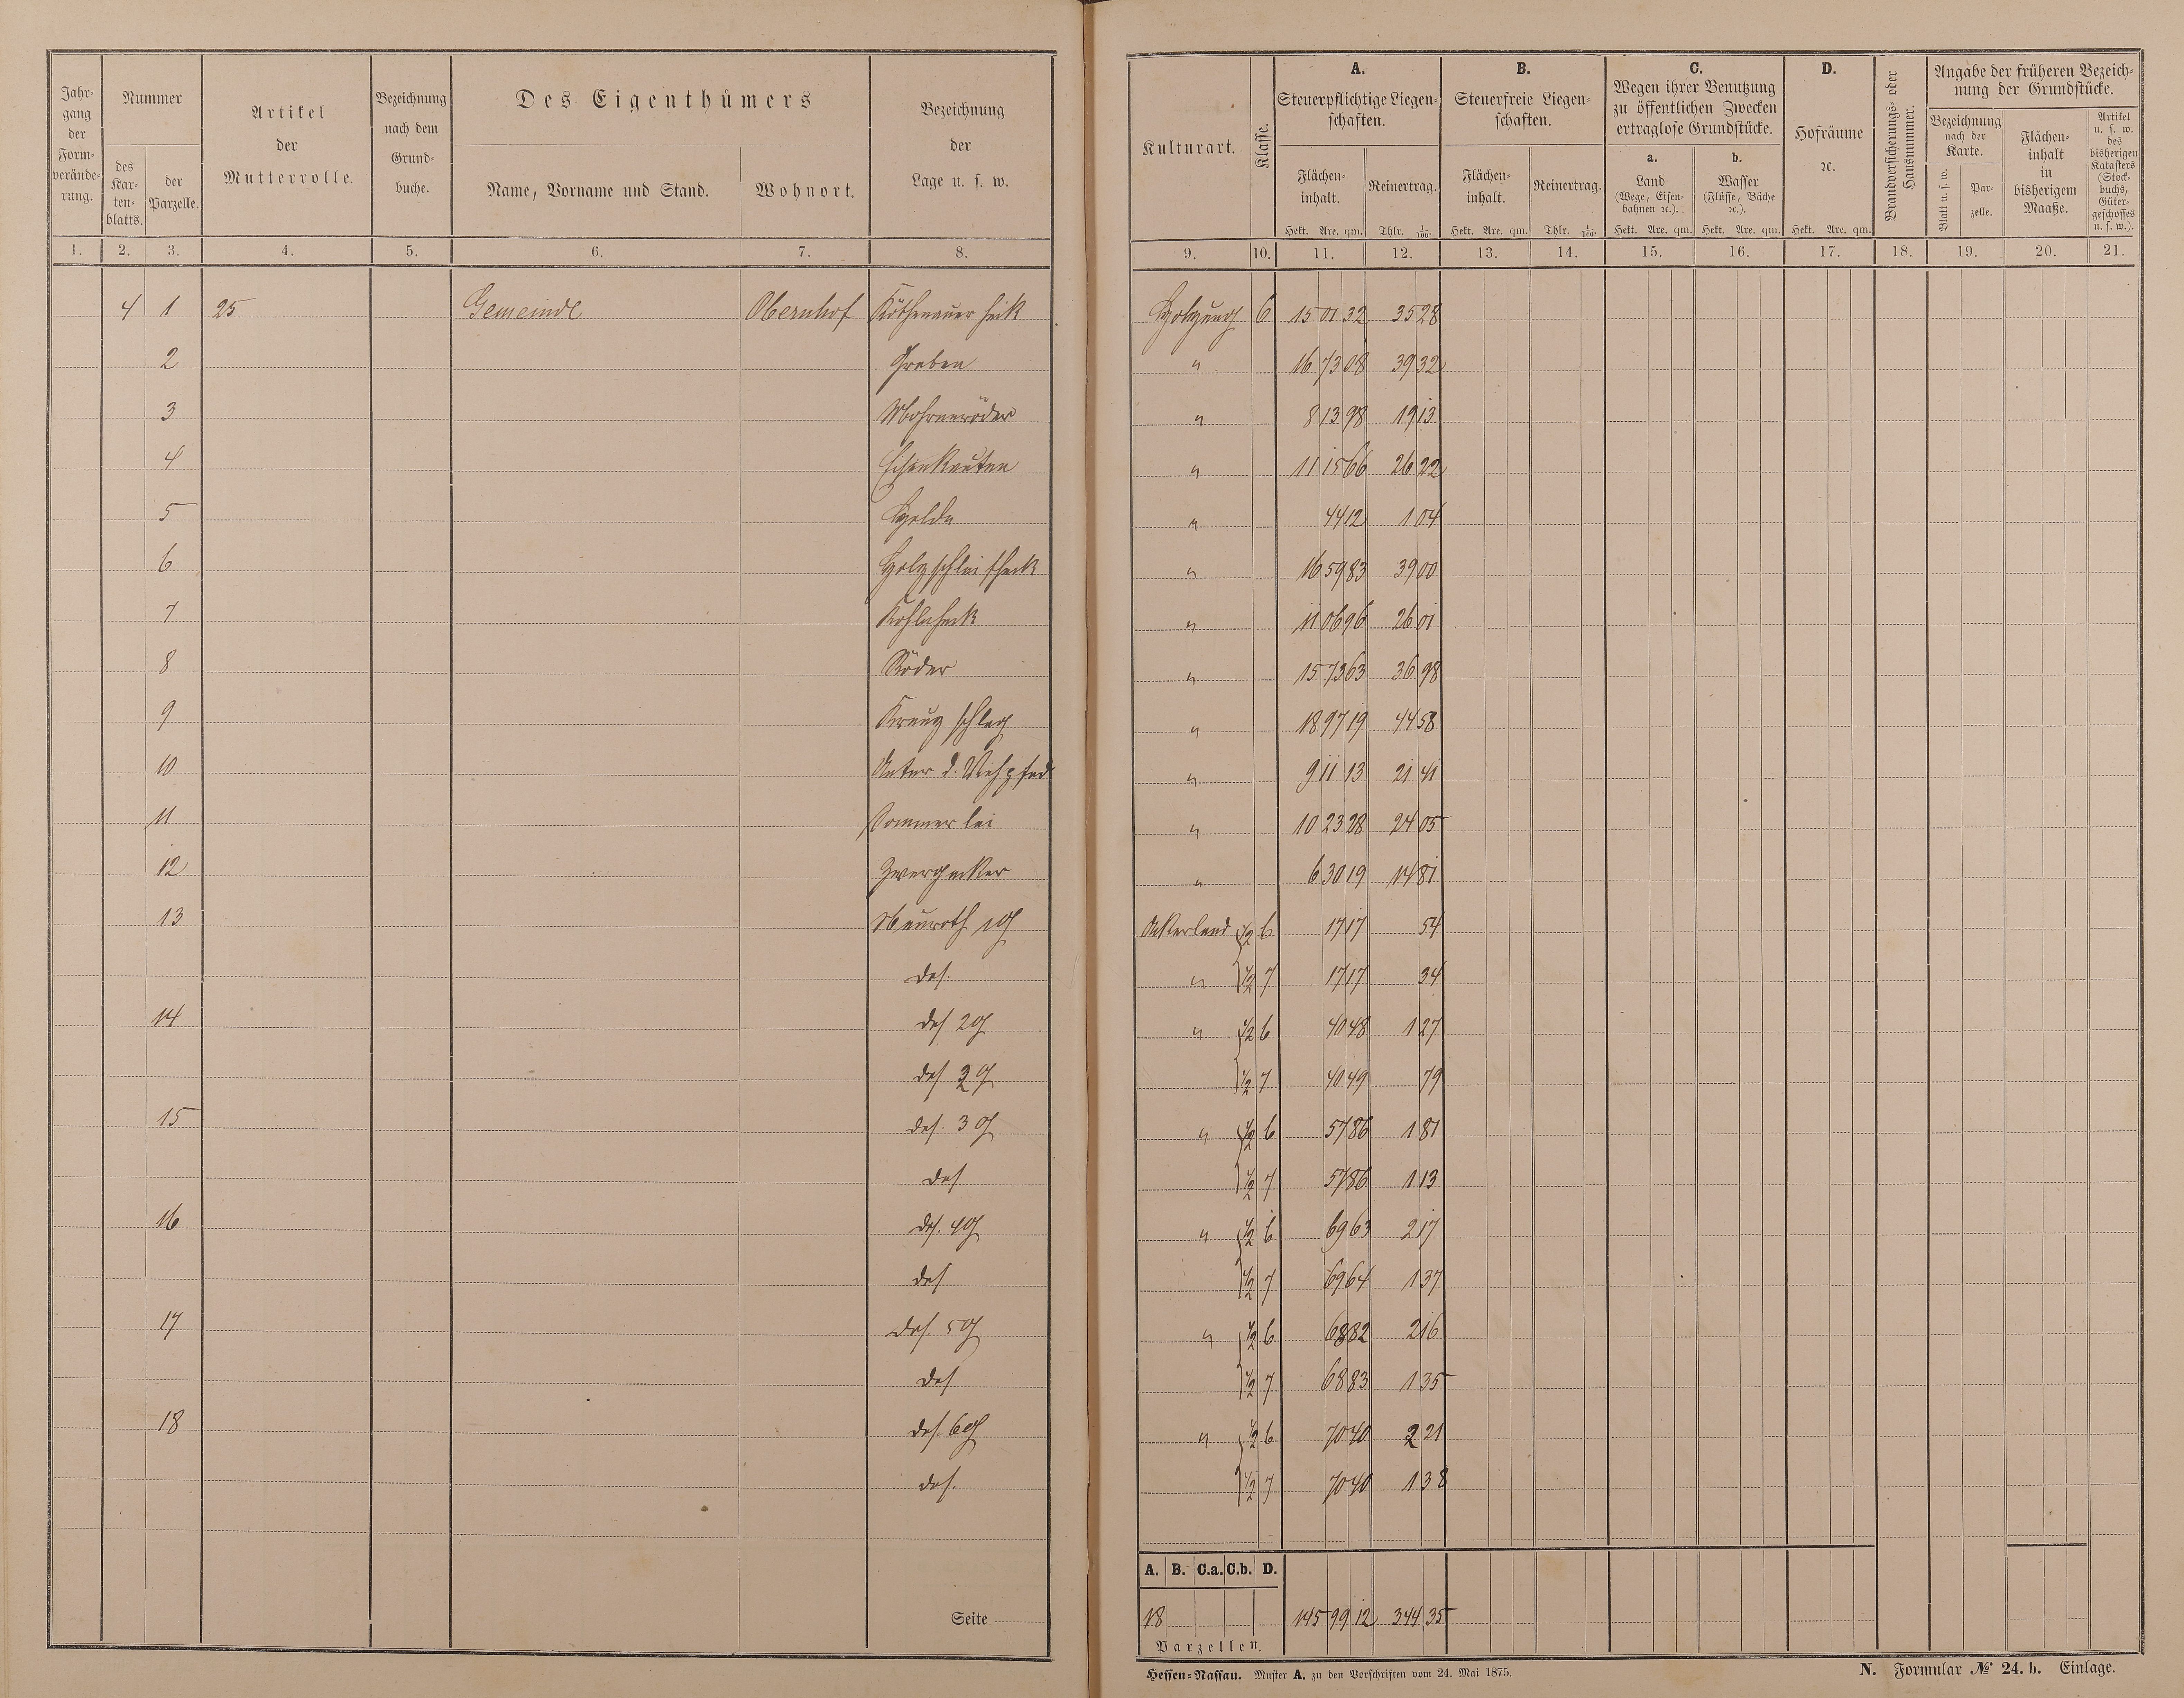 Jahrgang der Formveränderung.
Nummer
des Kartenblatts.
der Parzelle.
Artikel der Mutterrolle.
Bezeichnung nach dem Grundbuche.
Des Eigenthümers
Name, Vorname und Stand.
Wohnort.
Bezeichnung der Lage u. s. w.
Kulturart.
Klasse.
A.
Steuerpflichtige Liegenschaften.
Flächeninhalt.
Reinertrag.
Hekt. Are. qm.
Thlr. 1/100.
B.
Steuerfreie Liegenschaften.
Flächeninhalt.
Reinertrag.
Hekt. Are. qm.
Thlr. 1/100.
C.
Wegen ihrer Benutzung zu öffentlichen Zwecken ertraglose Grundstücke.
a. Land (Wege, Eisenbahnen ꝛc.).
b. Wasser (Flüsse, Bäche ꝛc.).
Hekt. Are. qm.
Hekt. Are. qm.
D.
Hofräume ꝛc.
Hekt. Are. qm.
Brandversicherungs- oder Hausnummer.
Angabe der früheren Bezeichnung der Grundstücke.
Bezeichnung nach der Karte.
Blatt u. s. w.
Parzelle.
Flächeninhalt in bisherigem Maaße.
Artikel u. s. w. des bisherigen Katasters (Stockbuchs, Gütergeschosses u. s. w.).
1. 2. 3. 4. 5. 6. 7. 8. 9. 10. 11. 12. 13. 14. 15. 16. 17. 18. 19. 20. 21.
4 1 25 Gemeinde Obernhof heck Holzung 6 15 01 32 35 28
2 Graben " 16 73 08 39 32
3 " 8 13 98 19 13
4 Eisenkauten " 11 15 66 26 22
5 Helde " 44 12 1 04
6 Holzschleifheck " 16 59 83 39 00
7 Kohlenheck " 11 06 96 26 01
8 Röder " 15 73 63 36 98
9 Kreuzschlag " 18 97 19 44 58
10 Unter d. Viehpfad " 9 11 13 21 41
11 Sommerlei " 10 23 28 24 05
12 Zwergacker " 6 30 19 14 81
13 Neuroth 1g Ackerland 1/2 6 17 17 54
das. " 1/2 7 17 17 34
14 das 2g " 1/2 6 40 48 1 27
das 2g 1/2 7 40 49 79
15 das. 3g " 1/2 6 57 86 1 81
das 1/2 7 57 86 1 13
16 das. 4g " 1/2 6 69 63 2 17
das 1/2 7 69 64 1 37
17 das. 5g " 1/2 6 68 82 2 16
das 1/2 7 68 83 1 35
18 das. 6g " 1/2 6 70 40 2 21
das. 1/2 7 70 40 1 38
Seite
A. B. C.a. C.b. D.
18 145 99 12 344 35
Parzellen.
Hessen-Nassau. Muster A. zu den Vorschriften vom 24. Mai 1875.
N. Formular № 24. b. Einlage.